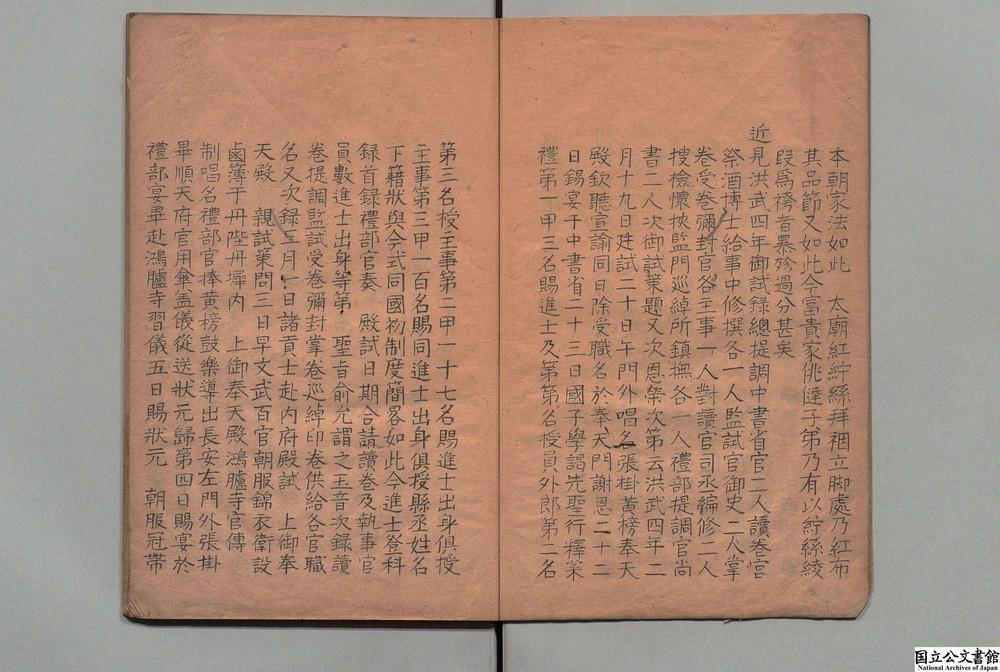 本朝家法如此　太廟紅紵絲拜裀立脚處乃紅布
其品節又如此今富貴家佻㒓子弟乃有以紵絲綾
段爲袴者暴殄過分甚矣
近見洪武四年御試錄總提調中書省官二人讀卷官
祭酒博士給事中修撰各一人監試官御史二人掌
卷受卷彌封官各主事一人對讀官司丞編修二人
搜檢懷挾監門巡綽所鎮撫各一人禮部提調官尚
書二人次御試策題又次恩榮次第云洪武四年二
月十九日廷試二十日午門外唱名張掛黃榜奉天
殿欽聽宣諭同日除受職名於奉天門謝恩二十二
日錫宴于中書省二十三日國子學謁先聖行釋菜
禮第一甲三名賜進士及第第一名授員外郎第二名
第三名授主事第二甲一十七名賜進士出身俱授
主事第三甲一百名賜同進士出身俱授縣丞姓名
下籍狀與今式同國初制度簡畧如此今進士登科
錄首錄禮部官奏　殿試日期合請讀卷及執事官
員數進士出身等第　聖旨俞允謂之玉音次錄讀
卷提調監試受卷彌封掌卷巡綽印卷供給各官職
名又次錄三月一日諸貢士赴內府殿試　上御奉
天殿　親試策問三日早文武百官朝服錦衣衛設
鹵簿于丹陛丹墀內　上御奉天殿鴻臚寺官傳
制唱名禮部官捧黃榜鼓樂導出長安左門外張掛
畢順天府官用傘盖儀從送狀元歸第四日賜宴於
禮部宴畢赴鴻臚寺習儀五日賜狀元　朝服冠帶
国立公文書館
National Archives of Japan